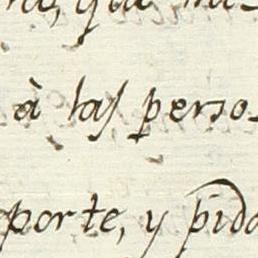 à las perso-
porte, y pido